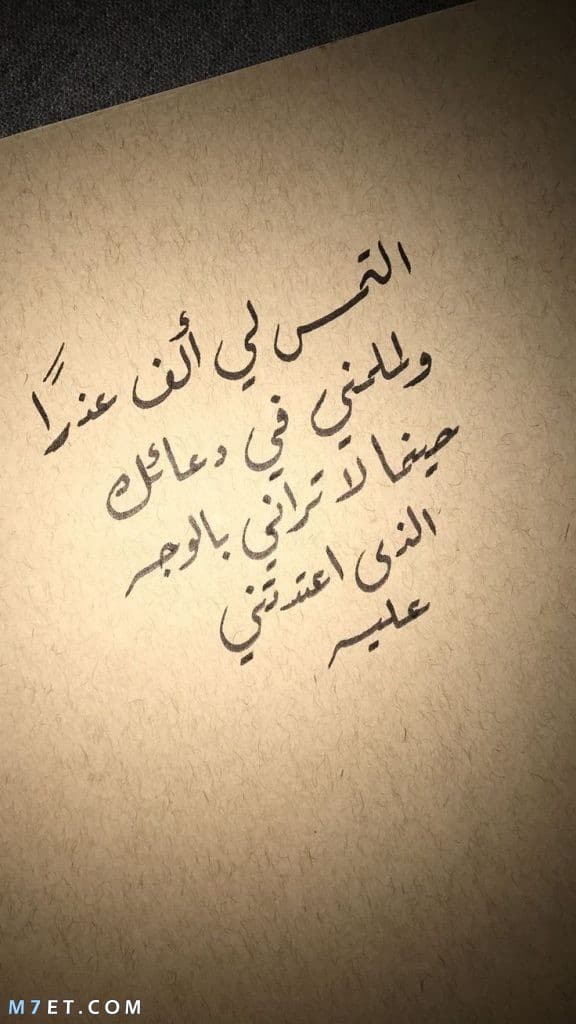 التمس لي ألف عذرًا
ولملمني في دعائك
حينما لا تراني بالوجه
الذى اعتدتني
عليه
M7ET.COM